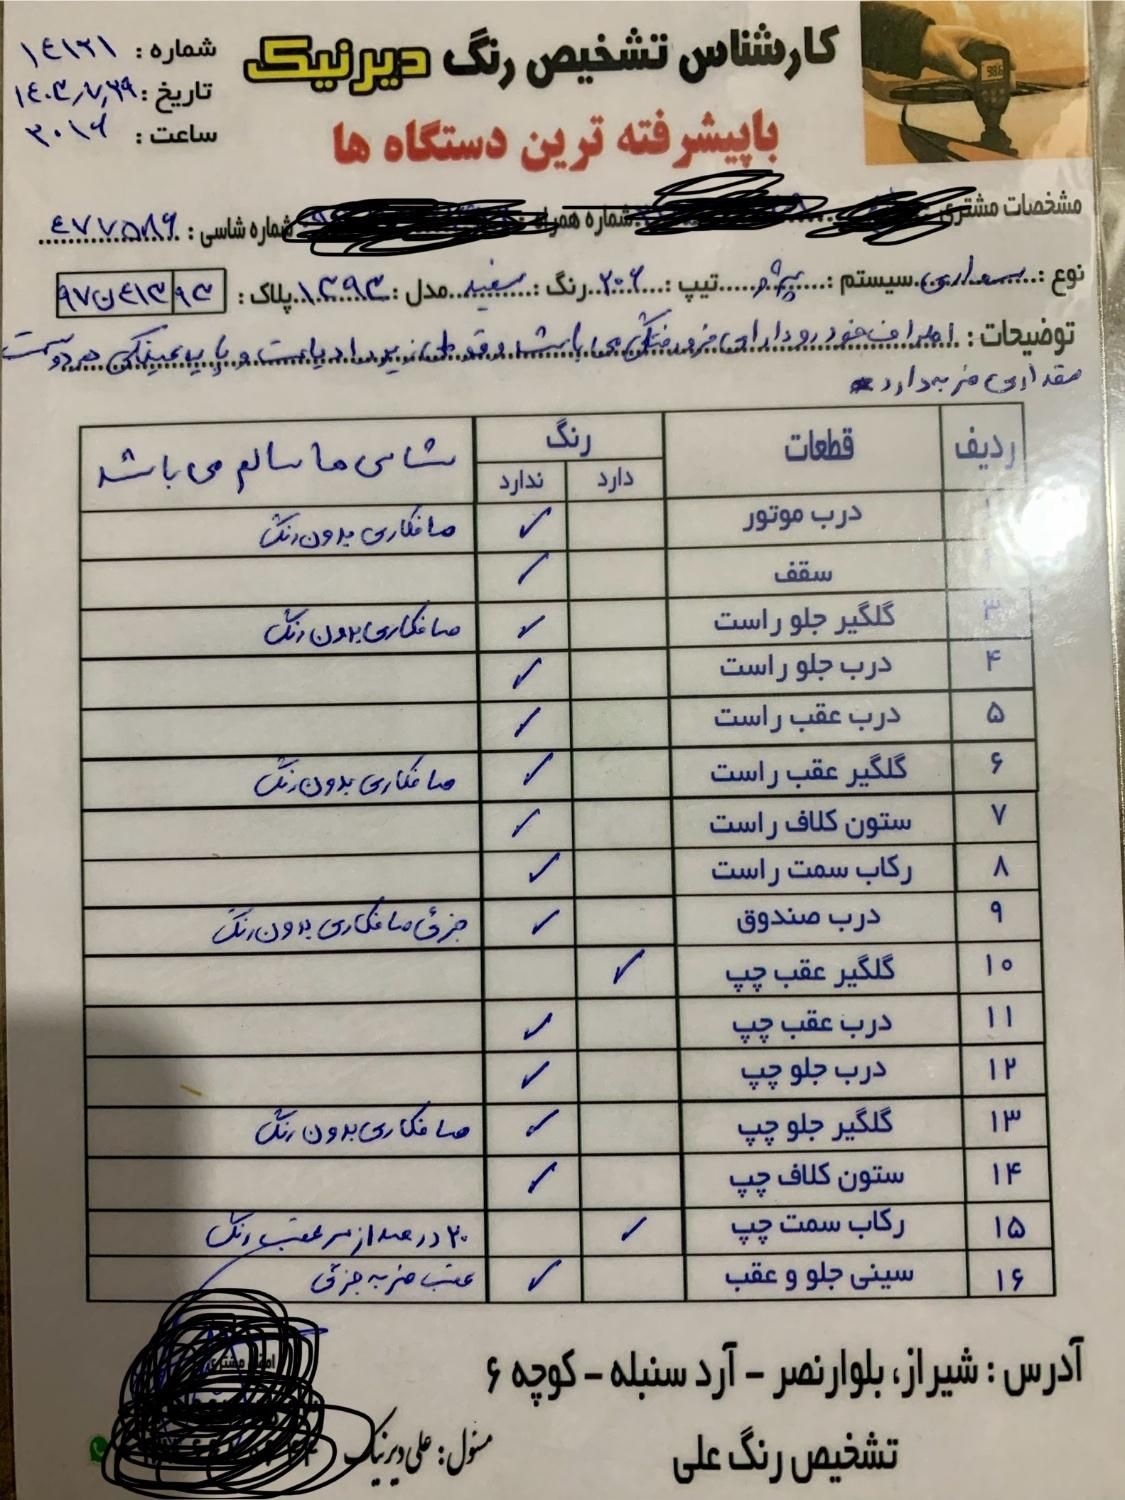 کارشناس تشخیص رنگ دیرنیک
باپیشرفته ترین دستگاه ها
شماره : ۱۴۱۲۱
تاریخ : ۱۴۰۳٫۷٫۲۹
ساعت : ۲۰:۱۶
مشخصات مشتری شماره همراه : شماره شاسی : ۴۷۷۵۸۶
نوع : سواری سیستم : پژو تیپ : ۲۰۶ رنگ : سفید مدل : ۱۳۹۳ پلاک : ۹۷ن۴۱۳ ۹۳
توضیحات : اطراف خودرو دارای فرورفتگی می باشد و قد طی زیر و پایه عینکی هر دو سمت
مقداری ضربه دارد
ردیف قطعات رنگ شاسی ها سالم می باشد
دارد ندارد
۱ درب موتور ✓ صافکاری بدون رنگ
۲ سقف ✓
۳ گلگیر جلو راست ✓ صافکاری بدون رنگ
۴ درب جلو راست ✓
۵ درب عقب راست ✓
۶ گلگیر عقب راست ✓ صافکاری بدون رنگ
۷ ستون کلاف راست ✓
۸ رکاب سمت راست ✓
۹ درب صندوق ✓ جزئی صافکاری بدون رنگ
۱۰ گلگیر عقب چپ ✓
۱۱ درب عقب چپ ✓
۱۲ درب جلو چپ ✓
۱۳ گلگیر جلو چپ ✓ صافکاری بدون رنگ
۱۴ ستون کلاف چپ ✓
۱۵ رکاب سمت چپ ✓ ۲۰ درصد از سر عقب رنگ
۱۶ سینی جلو و عقب ✓ عقب ضربه جزئی
آدرس : شیراز، بلوارنصر – آرد سنبله – کوچه ۶
تشخیص رنگ علی
مسئول : علی دیرنیک